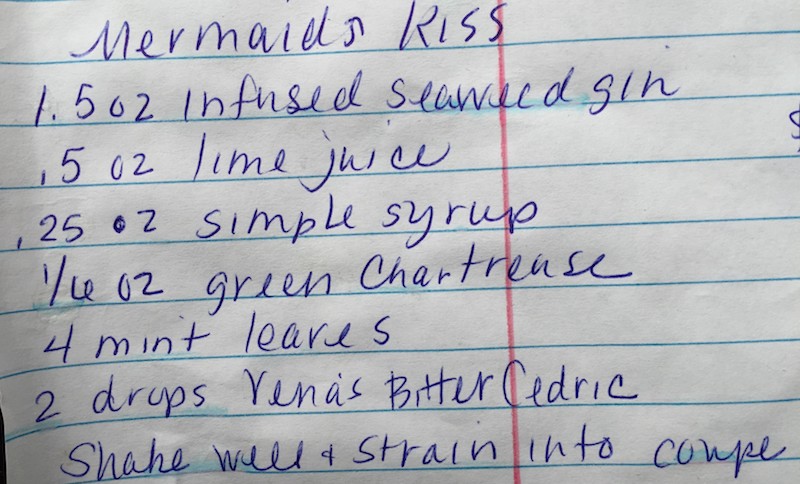 Mermaids Kiss
1.5 oz infused seaweed gin
.5 oz lime juice
.25 oz simple syrup
1/6 oz green Chartreuse
4 mint leaves
2 drops Yena's Bitter Cedric
Shake well & strain into coupe